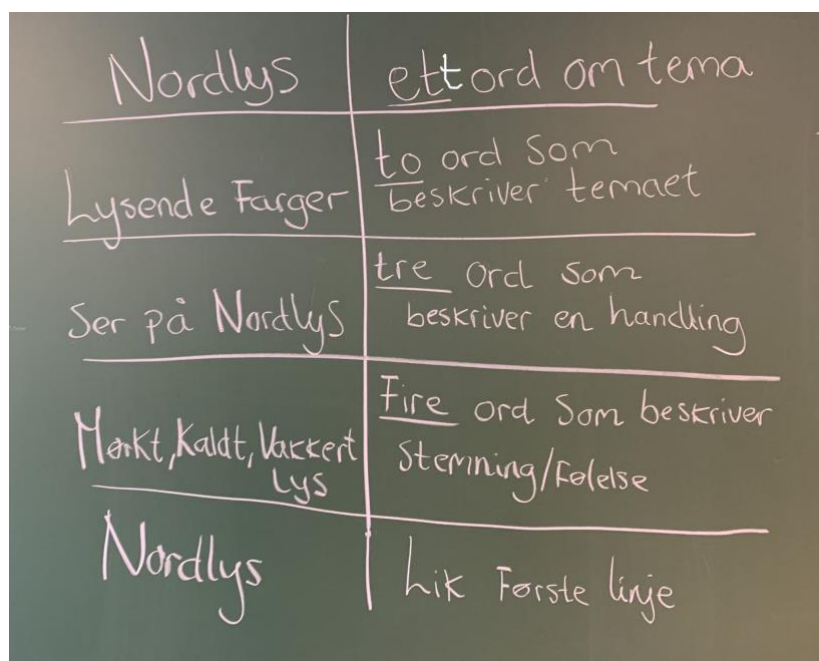 Nordlys
ett ord om tema
Lysende Farger
to ord som
beskriver temaet
Ser på Nordlys
tre ord som
beskriver en handling
Mørkt, Kaldt, Vakkert
Lys
Fire ord som beskriver
Stemning/Følelse
Nordlys
Lik Første linje